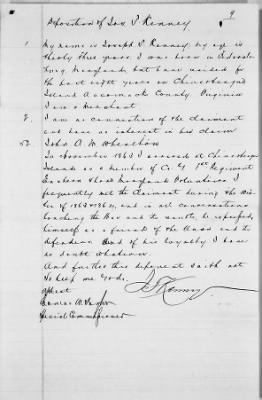 9
Deposition of Jos. P Kenney
1. My name is Joseph P Kenney my age is
thirty three years, I was born in Federals-
burg Maryland, but have resided for
the past eight years on Chincoteague
Island Accomack County. Virginia
I am a Merchant
2. I am no connection of the claimant
and have no interest in his claim
John A. M. Whealton
In November 1863 I arrived at Chincoteague
Island as a member of Co. 1st Regiment
Eastern Shore Maryland Volunteers I
frequently met the claimant during the Win-
ter of 1863 & 1864, and in all conversations
touching the War and its results, he expressed
himself as a friend of the Union and its
defenders. And of his loyalty I have
no doubt whatever.
And further this deponent saith not
So help me God.
Attest
J P Kenney
Special Commissioner